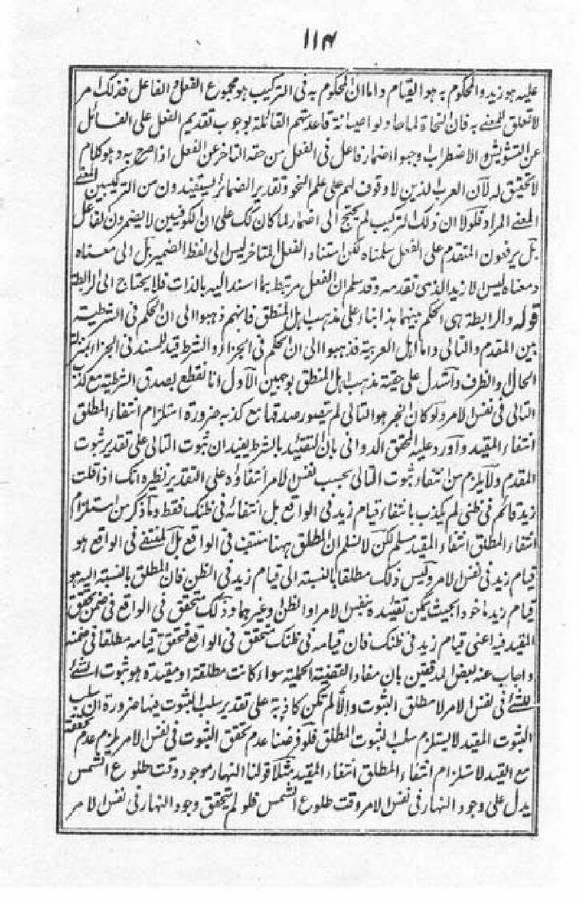 ١١٤
عليه هو زيد والمحكوم به هو القيام واما ان المحكوم به فى التركيب هو مجموع الفعل والفاعل فذلك امر
لا تعلق للمعنى به فان النحاة لما حاولوا صيانة قاعدتهم القائلة بوجوب تقديم الفعل على الفاعل
عن التشويش والاضطراب وجبوا اضمار فاعل فى الفعل من حقه التاخر عن الفعل اذا صح به وهو كلام
لا تحقيق له لان العرب الذين لا وقوف لهم على علم النحو وتقدير الضمائر يستفيدون من التركيبين المعنى
المعنى المراد فلولا ان ذلك التركيب لم يحتج الى اضمار لما كان كذلك على ان الكوفيين لا يضمرون الفاعل
بل يرفعون المتقدم على الفعل سلمناه لكن اسناد الفعل المتاخر ليس الى لفظ الضمير بل الى معناه
ومعناه ليس الا زيد الذى تقدمه وقد سلم ان الفعل مرتبط بما اسند اليه بالذات فلا يحتاج الى الرابطة
قوله والرابطة هى الحكم بينهما هذا بناء على مذهب اهل المنطق فانهم ذهبوا الى ان الحكم فى الشرطية
بين المقدم والتالى واما اهل العربية فذهبوا الى ان الحكم فى الجزاء والشرط قيد للمسند فى الجزاء بمنزلة
الحال والظرف واستدل على حقية مذهب اهل المنطق بوجهين الاول انا نقطع بصدق الشرطية مع كذب
التالى فى نفس الامر ولو كان الخبر هو التالى لم يتصور صدقها مع كذبه ضرورة استلزام انتفاء المطلق
انتفاء المقيد واورد عليه المحقق الدوانى بان التقييد بالشرط يفيد ان ثبوت التالى على تقدير ثبوت
المقدم ولا يلزم من انتفاء ثبوت التالى بحسب نفس الامر انتفاؤه على التقدير نظيره انك اذا قلت
زيد قائم فى ظنى لم يكذب بانتفاء قيام زيد فى الواقع بل انتفائه فى ظنك فقط وما ذكر من استلزام
انتفاء المطلق انتفاء المقيد مسلم لكن لا نسلم ان المطلق ههنا منتف فى الواقع بل المنتفى فى الواقع هو
قيام زيد فى نفس الامر وليس ذلك مطلقا بالنسبة الى قيام زيد فى الظن فان المطلق بالنسبة اليه هو
قيام زيد ماخوذا بحيث يمكن تقييده بنفس الامر او الظن او غيرهما وذلك متحقق فى الواقع فى ضمن تحقق
المقيد فيه اعنى قيام زيد فى ظنك فان قيامه فى ظنك متحقق فى الواقع فتحقق قيامه مطلقا فى ضمنه
واجاب عنه بعض المدققين بان مفاد القضية الحملية سواء كانت مطلقة او مقيدة هو ثبوت الشئ
للشئ فى نفس الامر لا مطلق الثبوت والا لم تكن كاذبة على تقدير سلب الثبوت فيها ضرورة ان سلب
الثبوت المقيد لا يستلزم سلب الثبوت المطلق فلو فرضنا عدم تحقق الثبوت فى نفس الامر يلزم عدم تحققه
مع القيد لاستلزام انتفاء المطلق انتفاء المقيد مثلا قولنا النهار موجود وقت طلوع الشمس
يدل على وجود النهار فى نفس الامر وقت طلوع الشمس فلو لم يتحقق وجود النهار فى نفس الامر